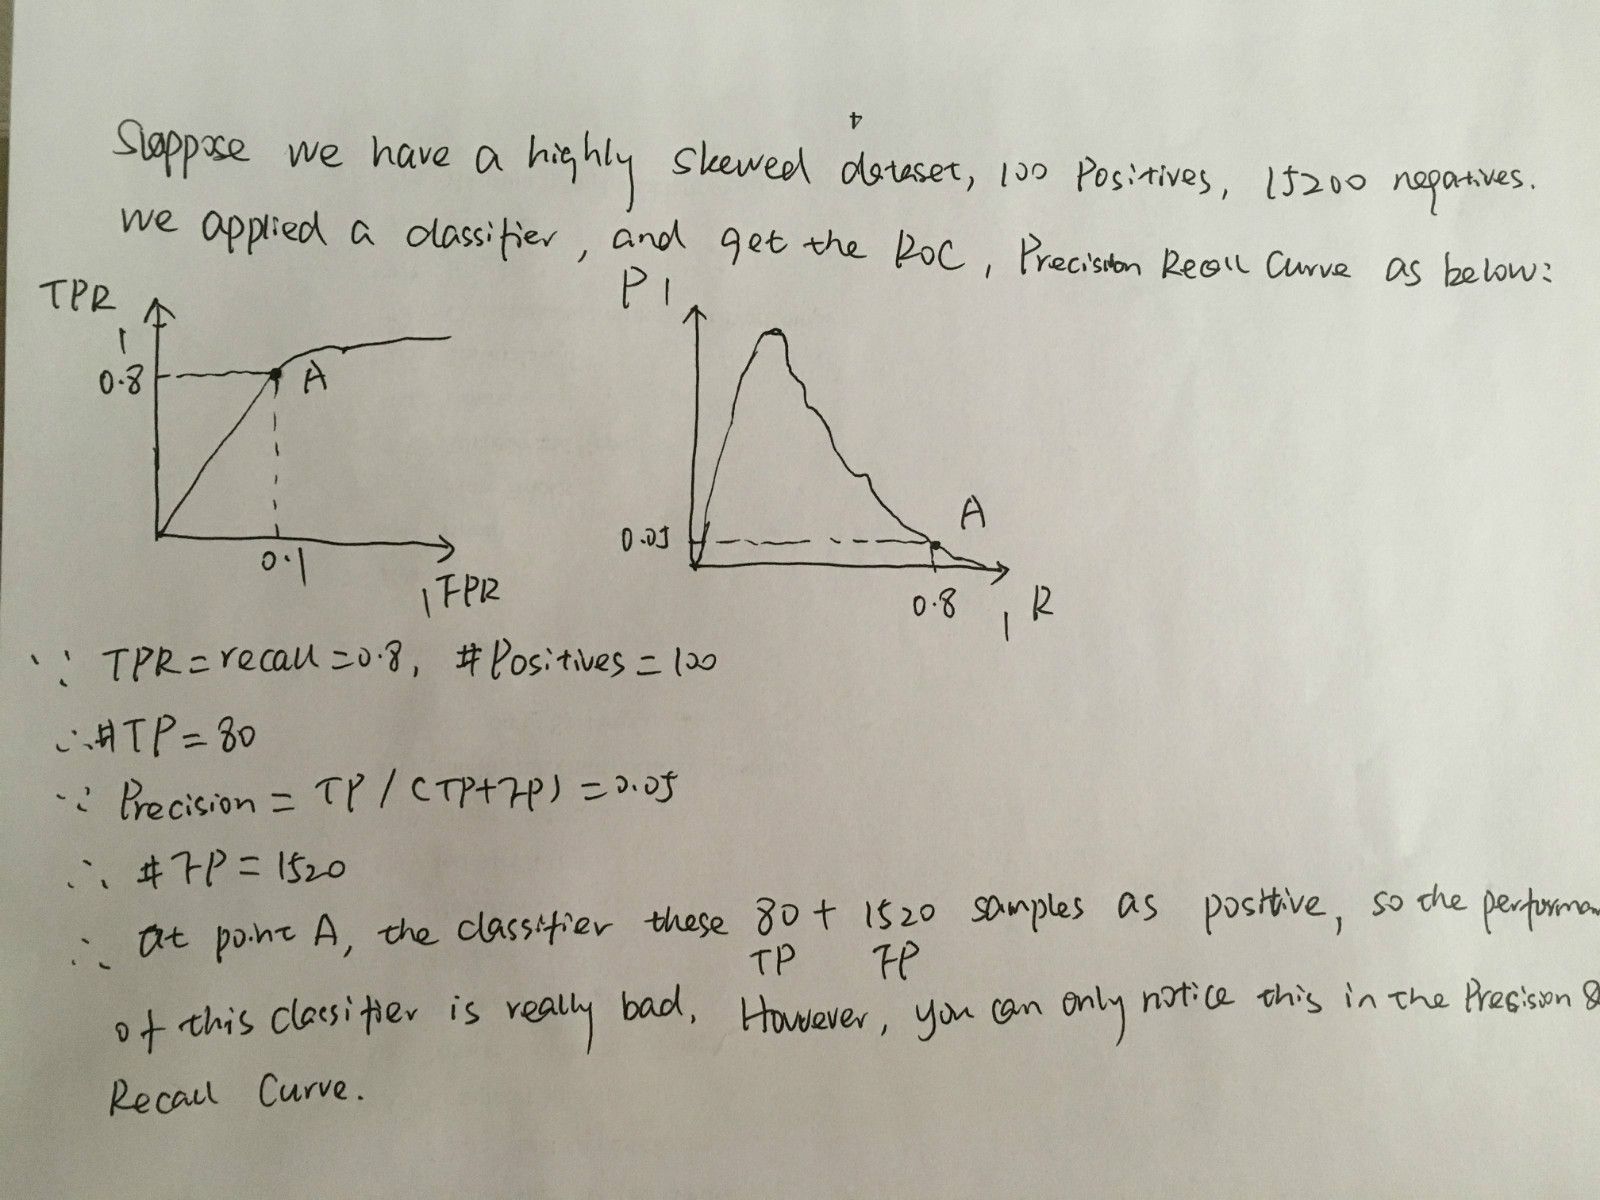 Suppose we have a highly skewed dataset, 100 Positives, 15200 negatives.
we applied a classifier, and get the ROC, Precision Recall Curve as below:
TPR
1
0.8
A
0.1
1 FPR
P 1
0.05
A
0.8
1 R
∵ TPR = recall = 0.8, # Positives = 100
∴ # TP = 80
∵ Precision = TP / (TP+FP) = 0.05
∴ # FP = 1520
∴ at point A, the classifier these 80 + 1520 samples as positive, so the performan
TP FP
of this classifier is really bad. However, you can only notice this in the Precision &
Recall Curve.